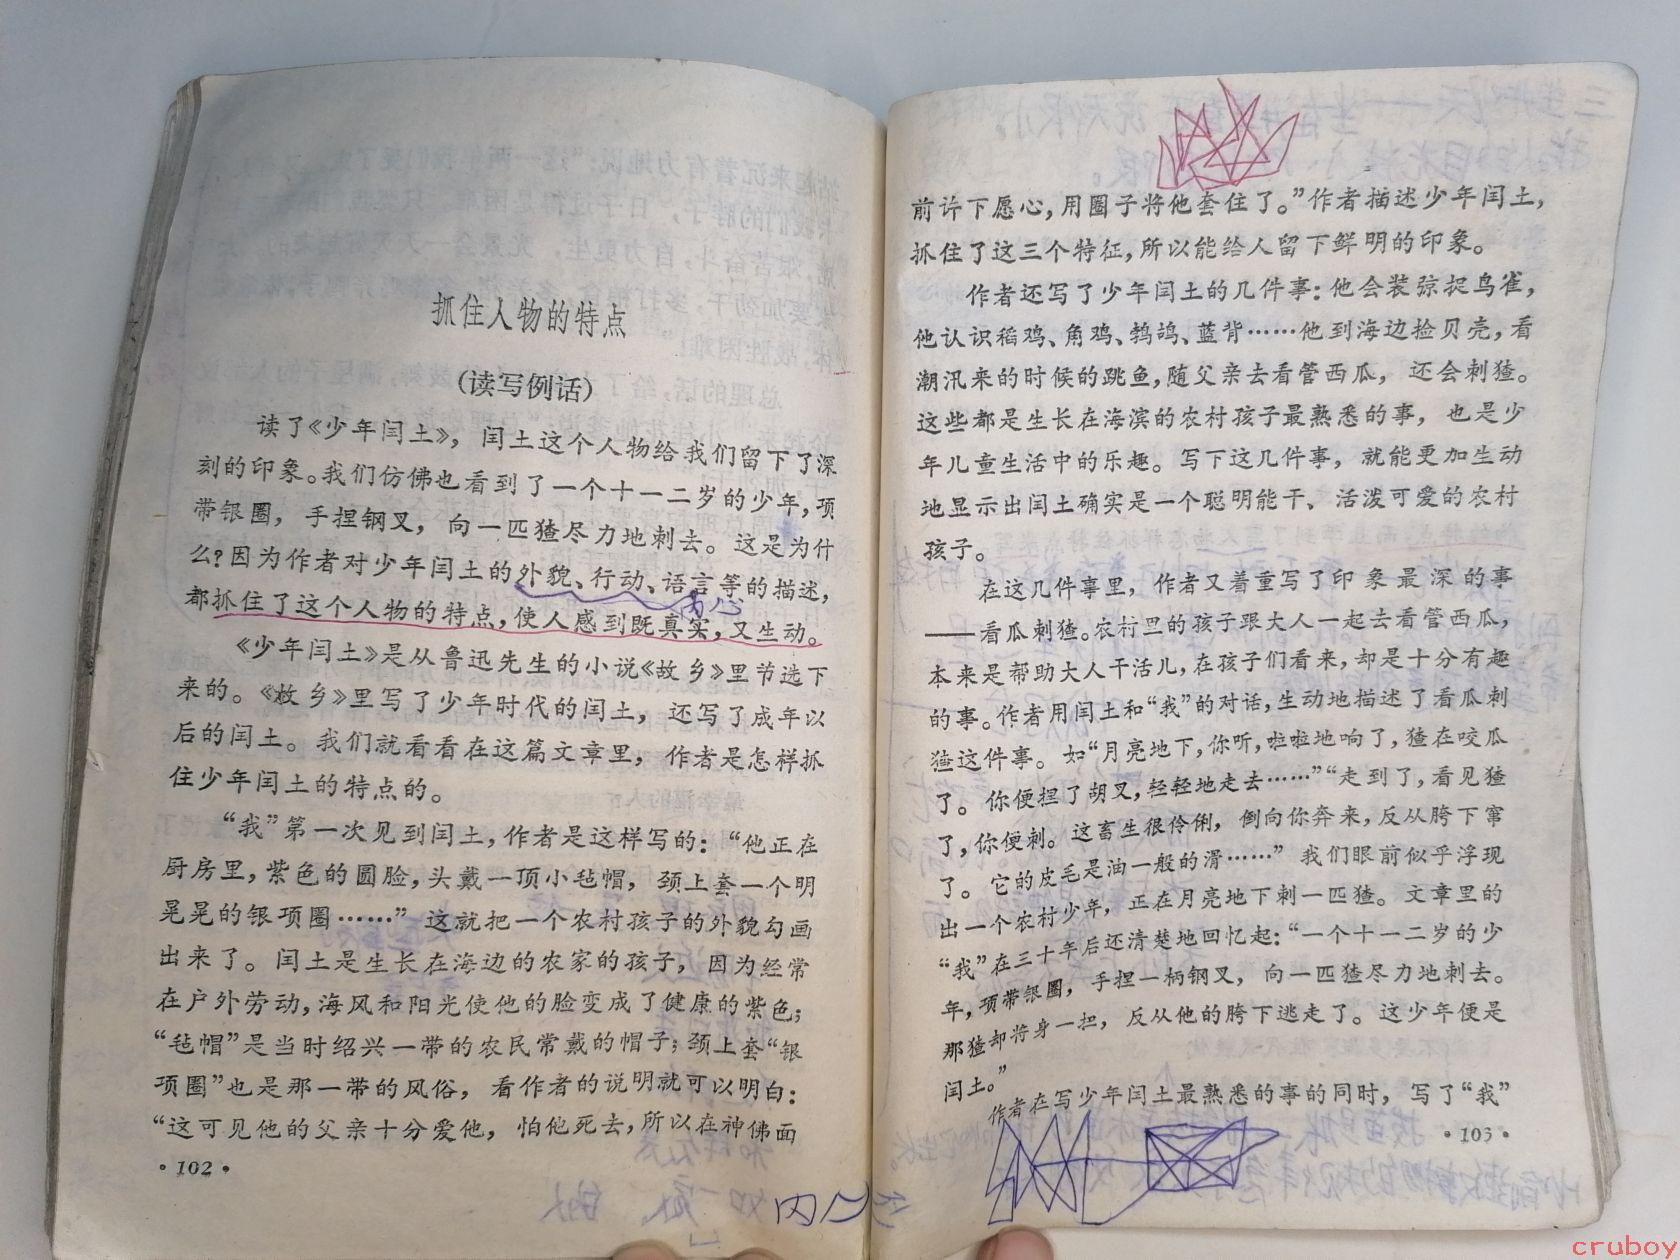 抓住人物的特点
（读写例话）
读了《少年闰土》，闰土这个人物给我们留下了深
刻的印象。我们仿佛也看到了一个十一二岁的少年，项
带银圈，手捏钢叉，向一匹猹尽力地刺去。这是为什
么？因为作者对少年闰土的外貌、行动、语言等的描述，
内心
都抓住了这个人物的特点，使人感到既真实，又生动。
《少年闰土》是从鲁迅先生的小说《故乡》里节选下
来的。《故乡》里写了少年时代的闰土，还写了成年以
后的闰土。我们就看看在这篇文章里，作者是怎样抓
住少年闰土的特点的。
“我”第一次见到闰土，作者是这样写的：“他正在
厨房里，紫色的圆脸，头戴一顶小毡帽，颈上套一个明
晃晃的银项圈……”这就把一个农村孩子的外貌勾画
出来了。闰土是生长在海边的农家的孩子，因为经常
在户外劳动，海风和阳光使他的脸变成了健康的紫色；
“毡帽”是当时绍兴一带的农民常戴的帽子；颈上套“银
项圈”也是那一带的风俗，看作者的说明就可以明白：
“这可见他的父亲十分爱他，怕他死去，所以在神佛面
·102·
前许下愿心，用圈子将他套住了。”作者描述少年闰土，
抓住了这三个特征，所以能给人留下鲜明的印象。
作者还写了少年闰土的几件事：他会装弶捉鸟雀，
他认识稻鸡、角鸡、鹁鸪、蓝背……他到海边捡贝壳，看
潮汛来的时候的跳鱼，随父亲去看管西瓜，还会刺猹。
这些都是生长在海滨的农村孩子最熟悉的事，也是少
年儿童生活中的乐趣。写下这几件事，就能更加生动
地显示出闰土确实是一个聪明能干、活泼可爱的农村
孩子。
在这几件事里，作者又着重写了印象最深的事
——看瓜刺猹。农村里的孩子跟大人一起去看管西瓜，
本来是帮助大人干活儿，在孩子们看来，却是十分有趣
的事。作者用闰土和“我”的对话，生动地描述了看瓜刺
猹这件事。如“月亮地下，你听，啦啦地响了，猹在咬瓜
了。你便捏了胡叉，轻轻地走去……”“走到了，看见猹
了，你便刺。这畜生很伶俐，倒向你奔来，反从胯下窜
了。它的皮毛是油一般的滑……”我们眼前似乎浮现
出一个农村少年，正在月亮地下刺一匹猹。文章里的
“我”在三十年后还清楚地回忆起：“一个十一二岁的少
年，项带银圈，手捏一柄钢叉，向一匹猹尽力地刺去。
那猹却将身一扭，反从他的胯下逃走了。这少年便是
闰土。”
作者在写少年闰土最熟悉的事的同时，写了“我”
·103·
cruboy